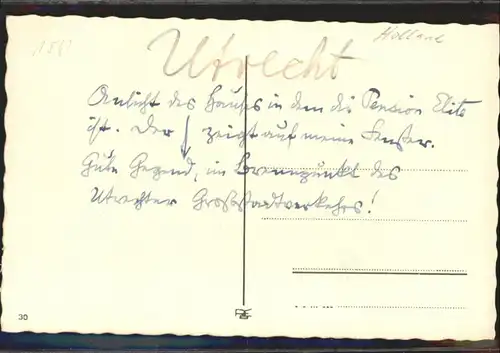 Holland
Utrecht
Anlicht des Hauses in dem die Pension Elite
ist. Der ↓ zeigt auf meine Fenster.
Gute Gegend, im Brennpunkt des
Utrechter Großstadtverkehrs!
30